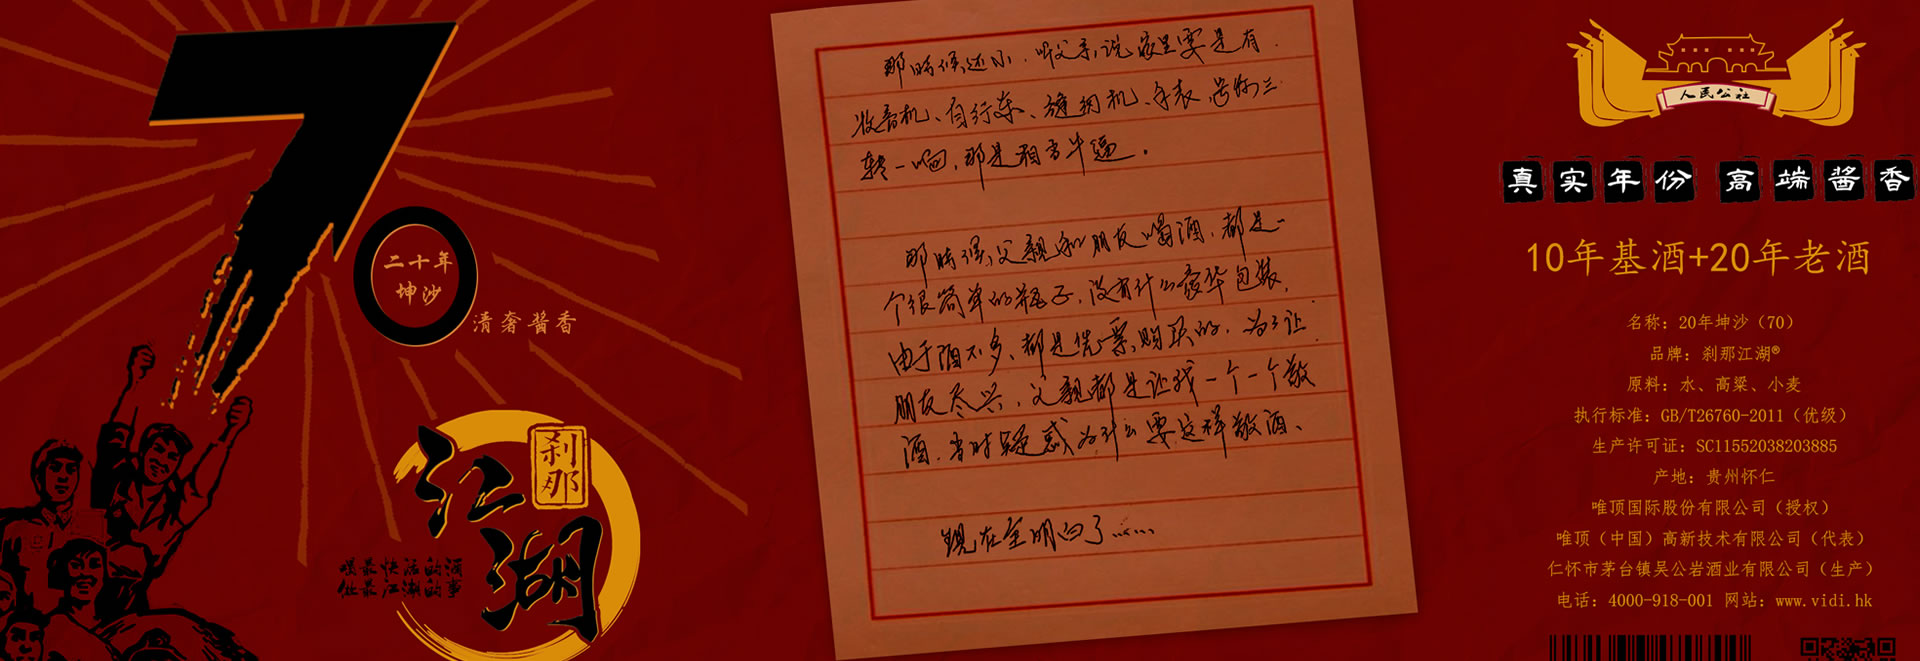 70
二十年
坤沙
清奢酱香
刹那
江湖
喝最快活的酒
做最江湖的事
那时候还小，听父亲说家里要是有
收音机、自行车、缝纫机、手表，号称三
转一响，那是相当牛逼。
那时候，父亲和朋友喝酒，都是一
个很简单的瓶子，没有什么豪华包装，
由于酒不多、都是凭票购买的，为了让
朋友尽兴，父亲都是让我一个一个敬
酒，当时疑惑为什么要这样敬酒、
现在全明白了……
人民公社
真实年份 高端酱香
10年基酒+20年老酒
名称：20年坤沙（70）
品牌：刹那江湖®
原料：水、高粱、小麦
执行标准：GB/T26760-2011（优级）
生产许可证：SC11552038203885
产地：贵州怀仁
唯顶国际股份有限公司（授权）
唯顶（中国）高新技术有限公司（代表）
仁怀市茅台镇吴公岩酒业有限公司（生产）
电话：4000-918-001 网站：www.vidi.hk